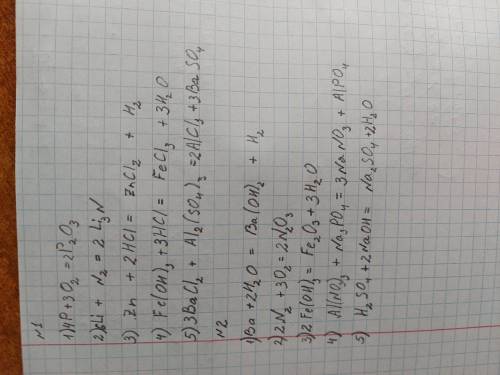 №1
1) 4P + 3O₂ = 2P₂O₃
2) 6Li + N₂ = 2 Li₃N
3) Zn + 2HCl = ZnCl₂ + H₂
4) Fe(OH)₃ + 3HCl = FeCl₃ + 3H₂O
5) 3BaCl₂ + Al₂(SO₄)₃ = 2AlCl₃ + 3BaSO₄
№2
1) Ba + 2H₂O = Ba(OH)₂ + H₂
2) 2N₂ + 3O₂ = 2N₂O₃
3) 2Fe(OH)₃ = Fe₂O₃ + 3H₂O
4) Al(NO₃)₃ + Na₃PO₄ = 3NaNO₃ + AlPO₄
5) H₂SO₄ + 2NaOH = Na₂SO₄ + 2H₂O